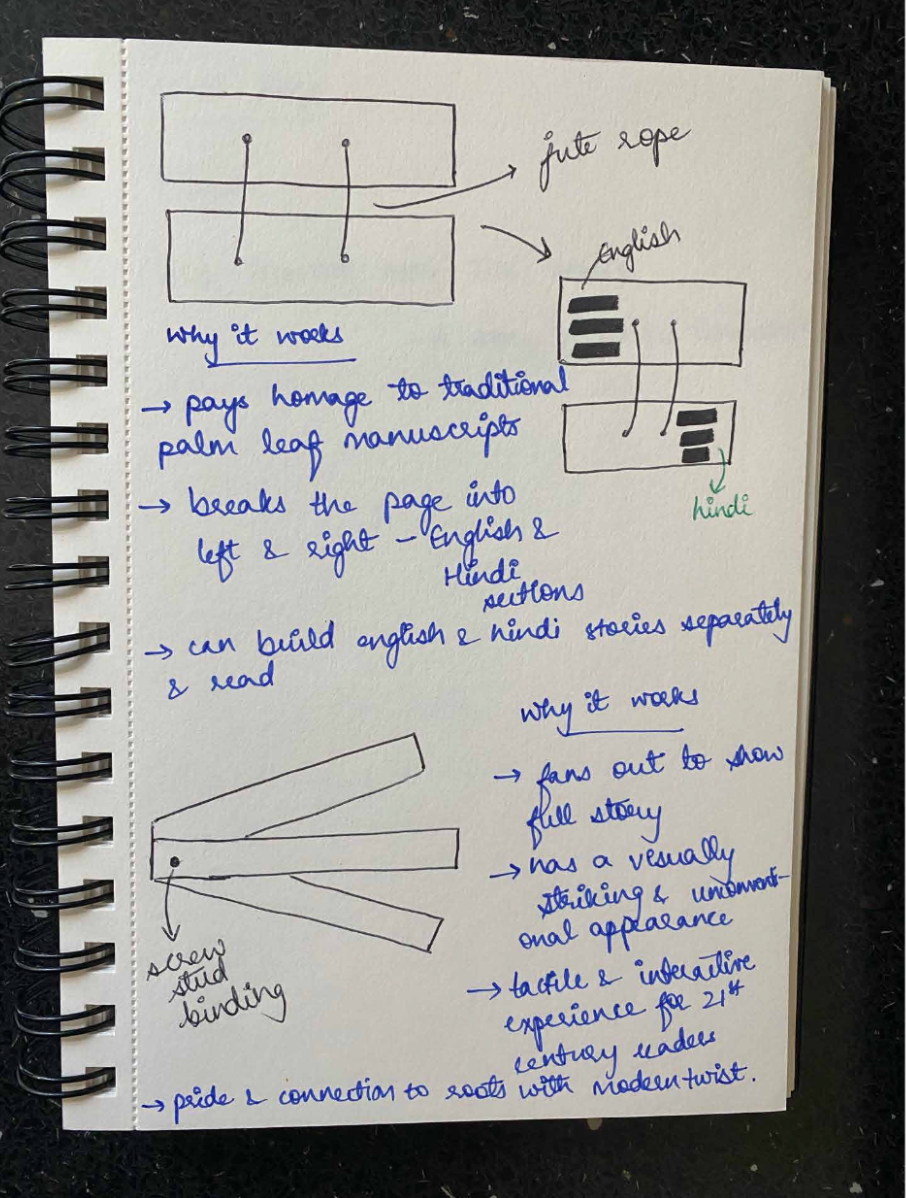 jute rope
English
why it works
→ pays homage to traditional
palm leaf manuscripts
→ breaks the page into
left & right – English &
Hindi
sections
hindi
→ can build english & hindi stories separately
& read
why it works
→ fans out to show
full story
→ has a visually
striking & unconvent-
onal appearance
→ tactile & interactive
experience for 21st
century readers
screw
stud
binding
→ pride & connection to roots with modern twist.